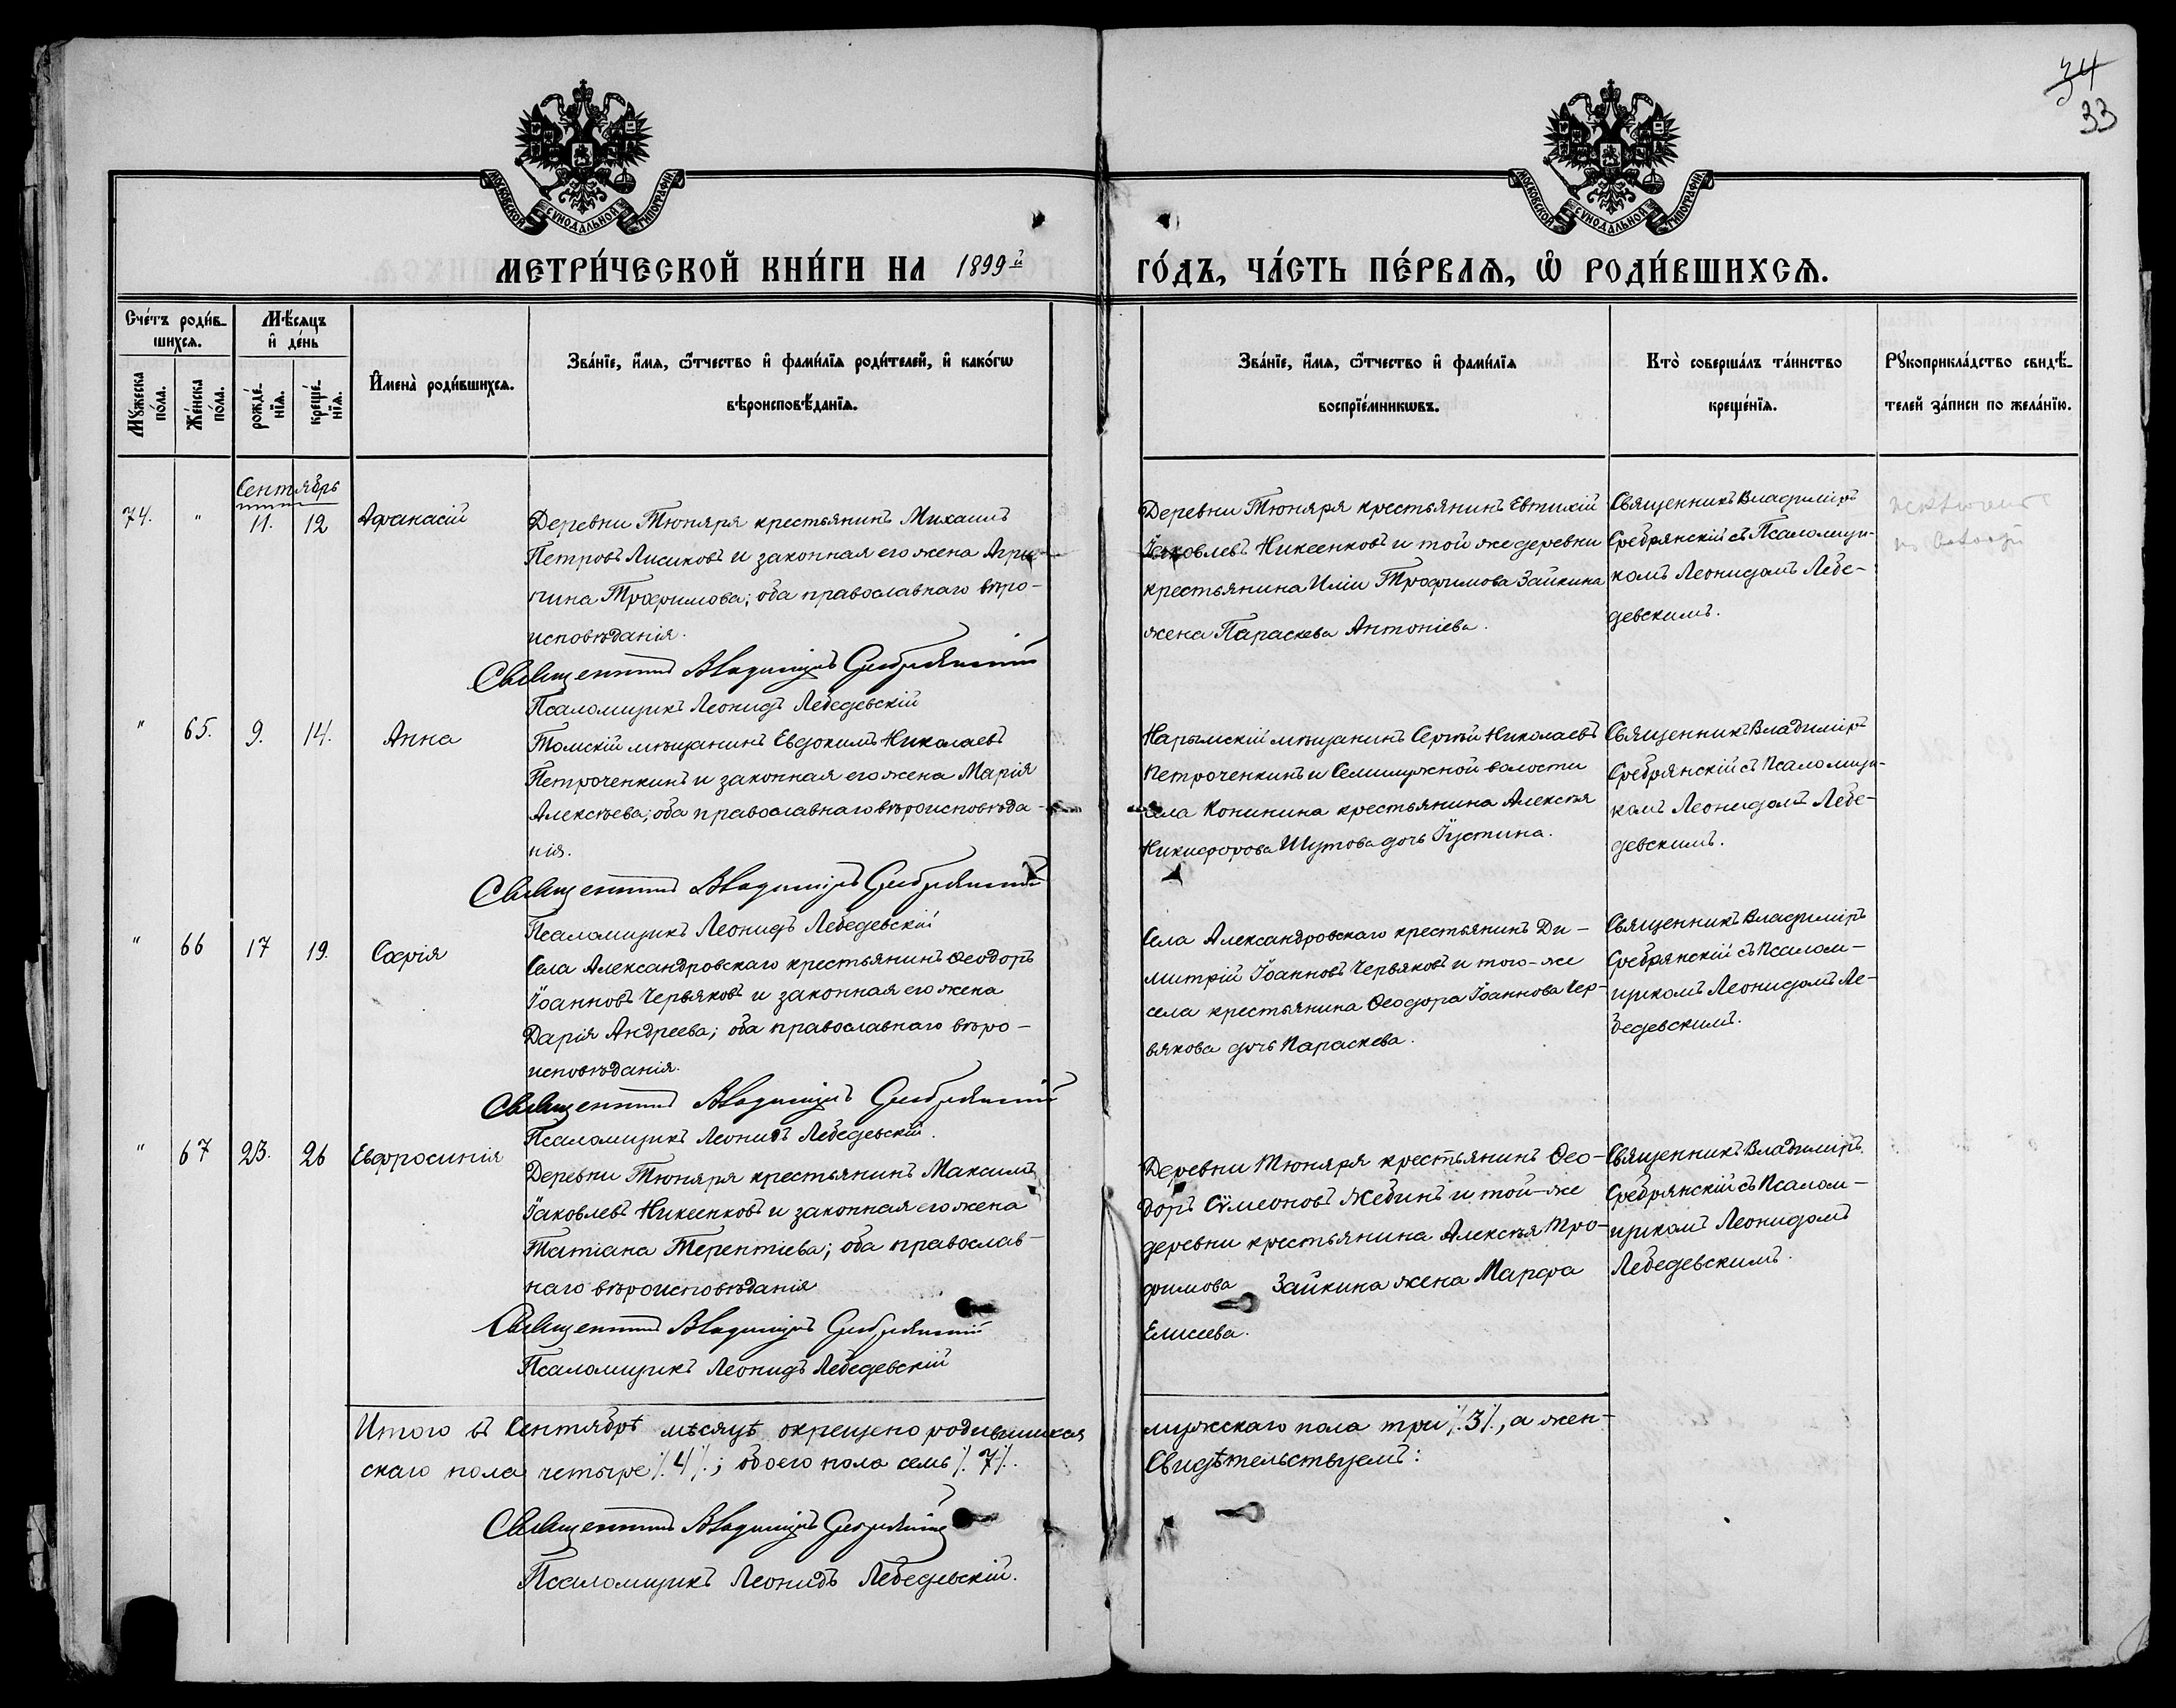 34
33
МОСКОВСКОЙ СУНОДАЛЬНОЙ ТИПОГРАФІИ
МОСКОВСКОЙ СУНОДАЛЬНОЙ ТИПОГРАФІИ
МЕТРИ́ЧЕСКОЙ КНИ́ГИ НА 1899й ГО́ДЪ, ЧА́СТЬ ПЕ́РВАѦ, Ѽ РОДИ́ВШИХСѦ.
Сче́тъ роди́в-
шихсѧ.
Мѣ́сѧцъ
и҆ де́нь
Мꙋ́жеска
по́ла.
Же́нска
по́ла.
рожде́-
нїѧ.
креще́-
нїѧ.
И҆мена̀ роди́вшихсѧ.
Зва́нїе, и҆́мѧ, ѻ҆́тчество и҆ фами́лїѧ роди́телей, и҆ како́гѡ
вѣроисповѣ́данїѧ.
Зва́нїе, и҆́мѧ, ѻ҆́тчество и҆ фами́лїѧ
воспрїе́мникѡвъ.
Кто̀ соверша́лъ та́инство
креще́нїѧ.
Рꙋкоприкла́дство свидѣ́-
телей за́писи по жела́нїю.
Сентябрь
74. " 11. 12 Аѳанасій
Деревни Тюняря крестьянинъ Михаилъ
Петровъ Лисиковъ и законная его жена Агрип-
пина Трофимова; оба православнаго вѣро-
исповѣданія.
Священникъ Владиміръ Сребрянскій
Псаломщикъ Леонидъ Лебедевскій
Деревни Тюняря крестьянинъ Евтихій
Іаковлевъ Никеенковъ и той же деревни
крестьянина Иліи Трофимова Зайкина
жена Параскева Антоніева.
Священникъ Владиміръ
Сребрянскій съ Псаломщи-
комъ Леонидомъ Лебе-
девскимъ.
" 65. 9. 14. Анна
Томскій мѣщанинъ Евдокимъ Николаевъ
Петроченкинъ и законная его жена Марія
Алексѣева; оба православнаго вѣроисповѣда-
нія.
Священникъ Владиміръ Сребрянскій
Псаломщикъ Леонидъ Лебедевскій
Нарымскій мѣщанинъ Сергѣй Николаевъ
Петроченкинъ и Семилужной волости
села Конинина крестьянина Алексѣя
Никифорова Шутова дочь Іустина.
Священникъ Владиміръ
Сребрянскій съ Псаломщи-
комъ Леонидомъ Лебе-
девскимъ.
" 66 17 19. Софія
Села Александровскаго крестьянинъ Ѳеодоръ
Іоанновъ Червяковъ и законная его жена
Дарія Андреева; оба православнаго вѣро-
исповѣданія.
Священникъ Владиміръ Сребрянскій
Псаломщикъ Леонидъ Лебедевскій.
Села Александровскаго крестьянинъ Ди-
митрій Іоанновъ Червяковъ и того-же
села крестьянина Ѳеодора Іоаннова Чер-
вякова дочь Параскева.
Священникъ Владиміръ
Сребрянскій съ Псалом-
щикомъ Леонидомъ Ле-
бедевскимъ.
" 67 23. 26 Евфросинія
Деревни Тюняря крестьянинъ Максимъ
Іаковлевъ Никеенковъ и законная его жена
Татіана Терентіева; оба православ-
наго вѣроисповѣданія
Священникъ Владиміръ Сребрянскій
Псаломщикъ Леонидъ Лебедевскій
Деревни Тюняря крестьянинъ Ѳео-
доръ Сѵмеоновъ Жебинъ и той-же
деревни крестьянина Алексѣя Тро-
фимова Зайкина жена Марфа
Елисеева.
Священникъ Владиміръ
Сребрянскій съ Псалом-
щикомъ Леонидомъ
Лебедевскимъ.
Итого въ Сентябрѣ мѣсяцѣ окрещено родившихся мужскаго пола три ⁒3⁒, а жен-
скаго пола четыре ⁒4⁒; обоего пола семь ⁒7⁒. Свидѣтельствуемъ:
Священникъ Владиміръ Сребрянскій
Псаломщикъ Леонидъ Лебедевскій.